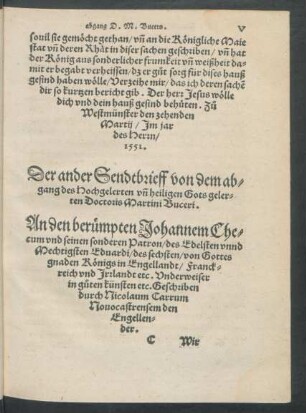 abgang D. M. Bucers. V
souil sie gemöcht gethan/ vñ an die Königliche Maie
stat vñ deren Rhät in diser sachen geschriben/ vñ hat
der König aus sonderlicher frumkeit vñ weißheit da-
mit er begabt verheissen/ dz er güt sorg für dises hauß
gesind haben wölle/ Verzeihe mir/ das ich deren sachẽ
dir so kurtzen bericht gib. Der herr Jesus wölle
dich vnd dein hauß gesind behüten. Zů
Westmünster den zehenden
Martij/ Im jar
des Herrn/
1551.
Der ander Sendtbrieff von dem ab-
gang des Hochgelerten vñ heiligen Gots geler-
ten Doctoris Martini Buceri.
An den berümpten Johannem Che-
cum vnd seinen sonderen Patron/ des Edelsten vnnd
Mechtigsten Eduardi/ des sechsten/ von Gottes
gnaden Königs in Engellandt/ Franck-
reich vnd Irrlandt etc. Vnderweiser
in gůten künsten etc. Geschriben
durch Nicolaum Carrum
Nouocastrensem den
Engellen-
der.
C Wir